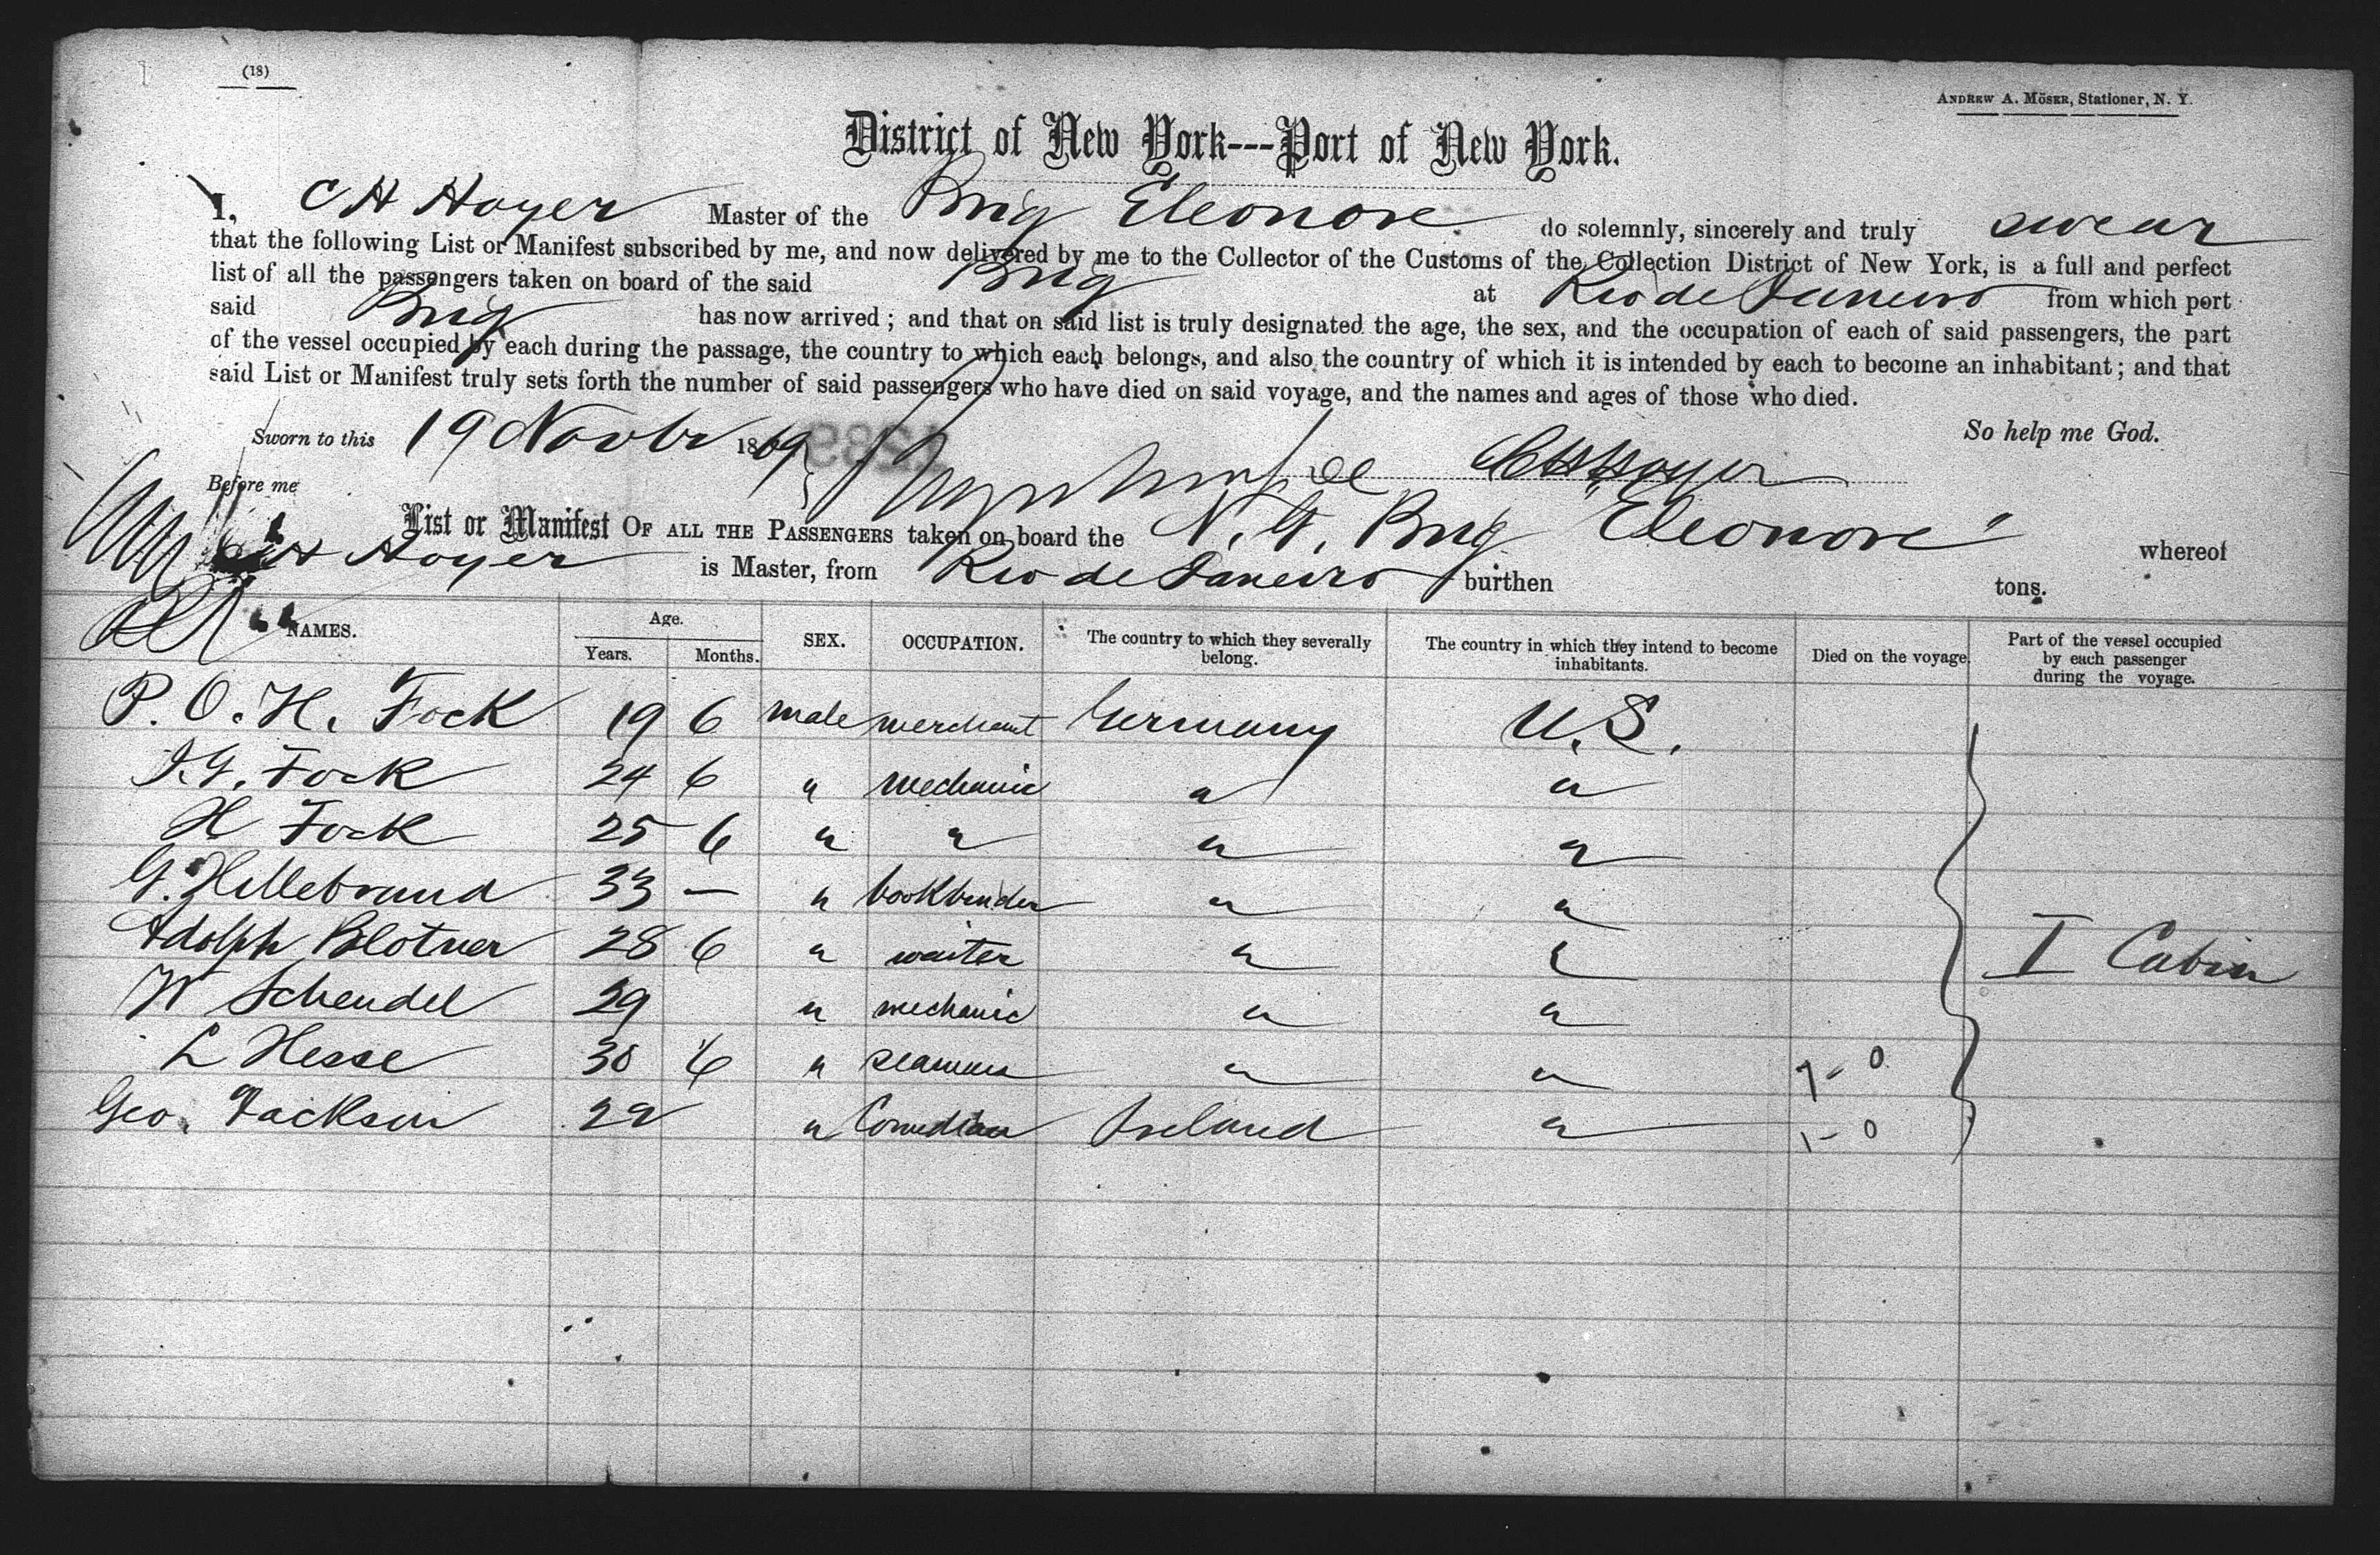 (18)
ANDREW A. MÖSER, Stationer, N. Y.
District of New York---Port of New York.
I, C H Hoyer Master of the Brig Eleonore do solemnly, sincerely and truly swear
that the following List or Manifest subscribed by me, and now delivered by me to the Collector of the Customs of the Collection District of New York, is a full and perfect
list of all the passengers taken on board of the said Brig at Rio de Janeiro from which port
said Brig has now arrived; and that on said list is truly designated the age, the sex, and the occupation of each of said passengers, the part
of the vessel occupied by each during the passage, the country to which each belongs, and also the country of which it is intended by each to become an inhabitant; and that
said List or Manifest truly sets forth the number of said passengers who have died on said voyage, and the names and ages of those who died.
So help me God.
Sworn to this 19 Novbr 1869
CHHoyer
Before me
List or Manifest OF ALL THE PASSENGERS taken on board the N. G. Brig "Eleonore" whereof
C H Hoyer is Master, from Rio de Janeiro burthen tons.
NAMES. Age. Years. Months. SEX. OCCUPATION. The country to which they severally belong. The country in which they intend to become inhabitants. Died on the voyage. Part of the vessel occupied by each passenger during the voyage.
P. O. H. Fock 19 6 male merchant Germany U.S.
J. G. Fock 24 6 " mechanic " "
H Fock 25 6 " " " "
G. Hillebrand 33 — " bookbinder " "
Adolph Blotner 28 6 " waiter " " I Cabin
W Schendel 29 " mechanic " "
L Hesse 30 6 " seaman " " 7- 0
Geo. Jackson 22 " Comedian Ireland " 1- 0